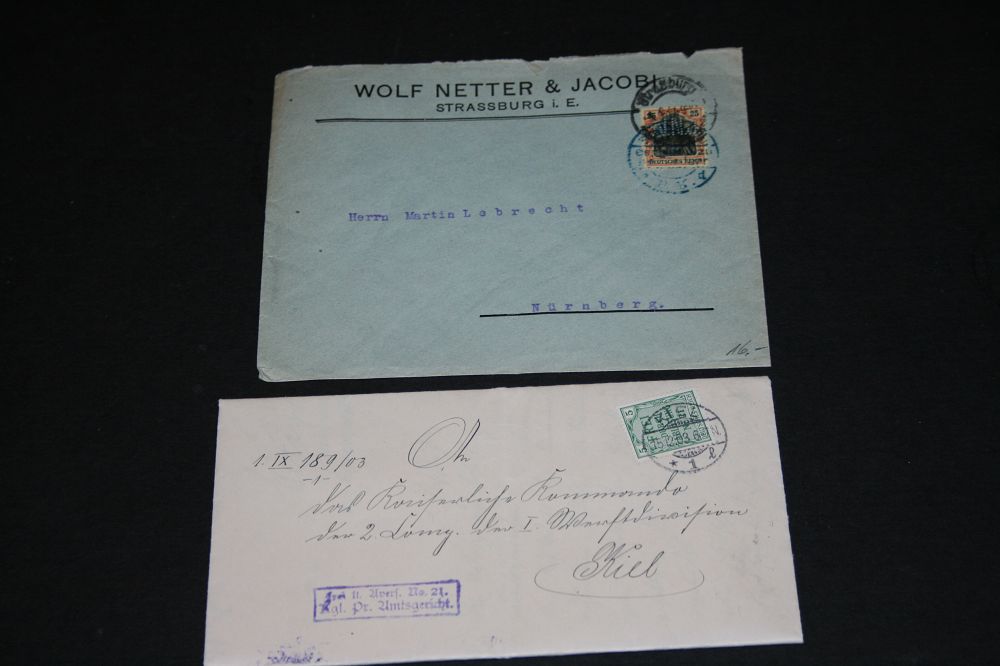 WOLF NETTER & JACOBI
STRASSBURG i. E.
Strassburg
25 25
DEUTSCHES REICH
Herrn Martin Lebrecht
Nürnberg.
16.-
5 5
1. IX 189/03
-1-
An
das Kaiserliche Kommando
der 2. Comp. der I. Werftdivision
Kiel
* 1 l
Frei lt. Avers. No. 21.
Kgl. Pr. Amtsgericht.